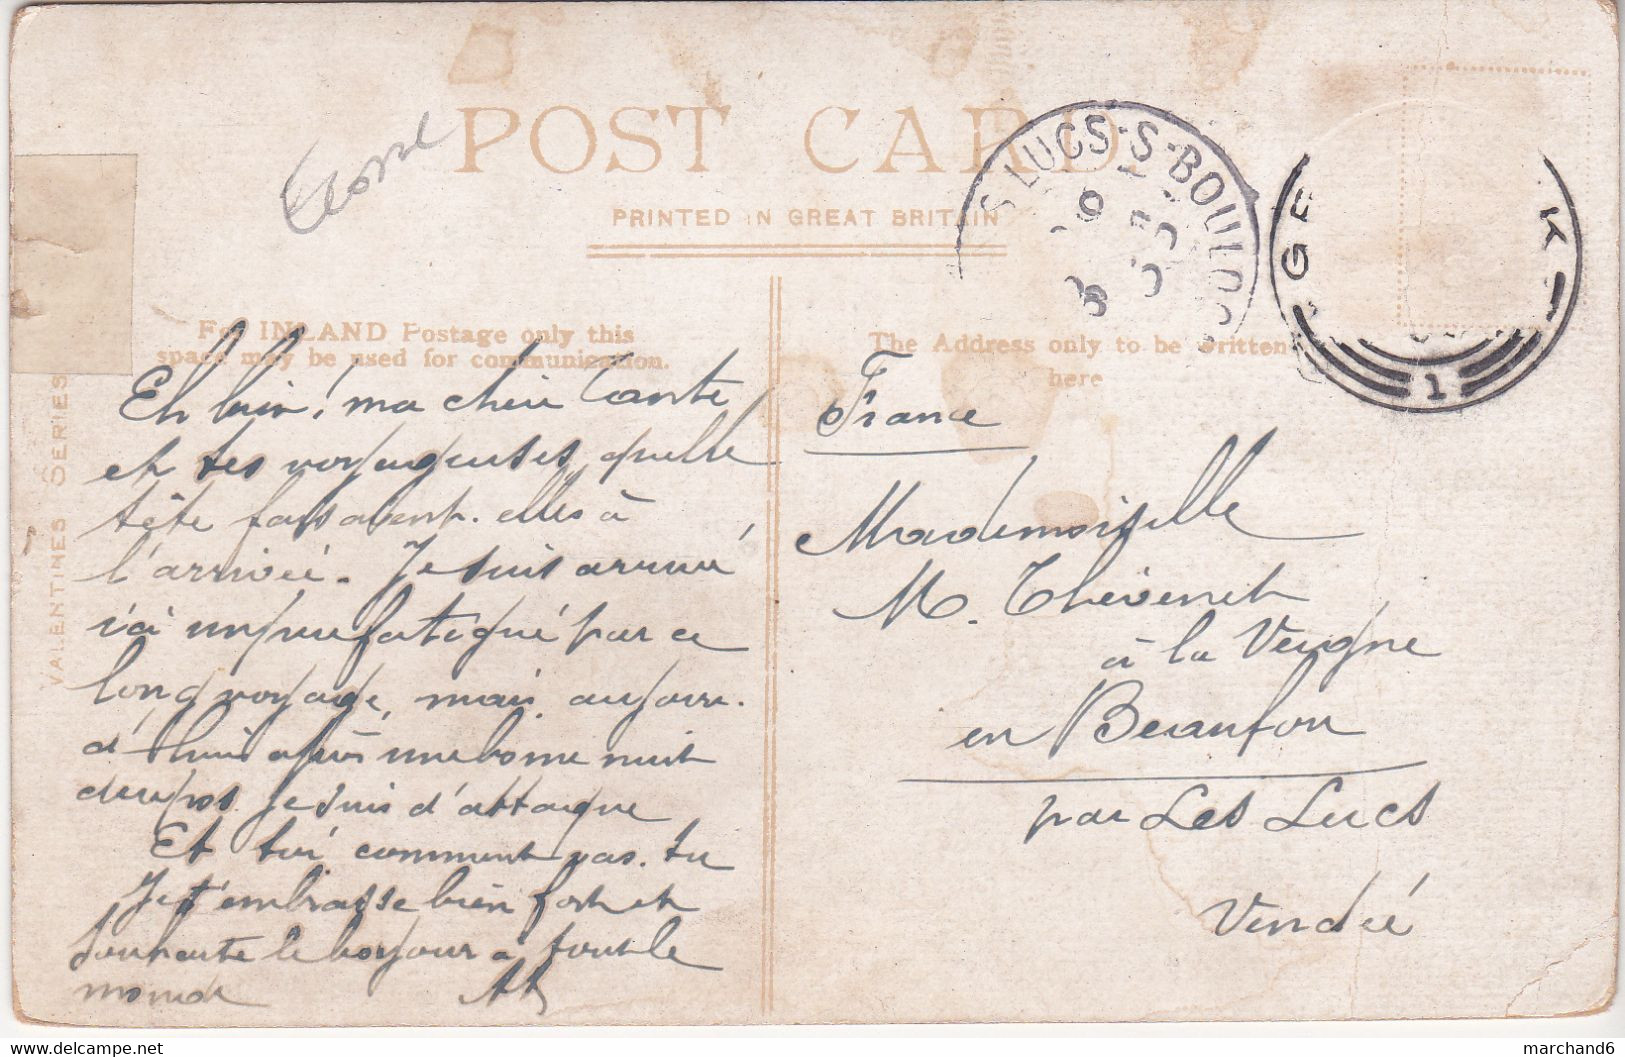 POST CARD
PRINTED IN GREAT BRITAIN
For INLAND Postage only this
space may be used for communication.
The Address only to be written
here
VALENTINES SERIES
S LUCS-S-BOULOG
GE K
1
Eh bien! ma chère Tante
et tes voyageuses quelle
tête faisaient-elles à
l'arrivée. Je suis arrivé
ici un peu fatigué par ce
long voyage, mais aujour-
d'hui après une bonne nuit
de repos je suis d'attaque
Et toi comment vas-tu
Je t'embrasse bien fort et
souhaite le bonjour à tout le
monde
France
Mademoiselle
M. Thévenet
à la Vergne
en Beaufou
par Les Lucs
Vendée
marchand6
www.delcampe.net